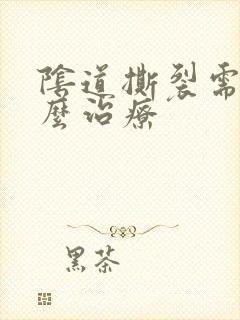 陰道撕裂需
麼治療
黑茶